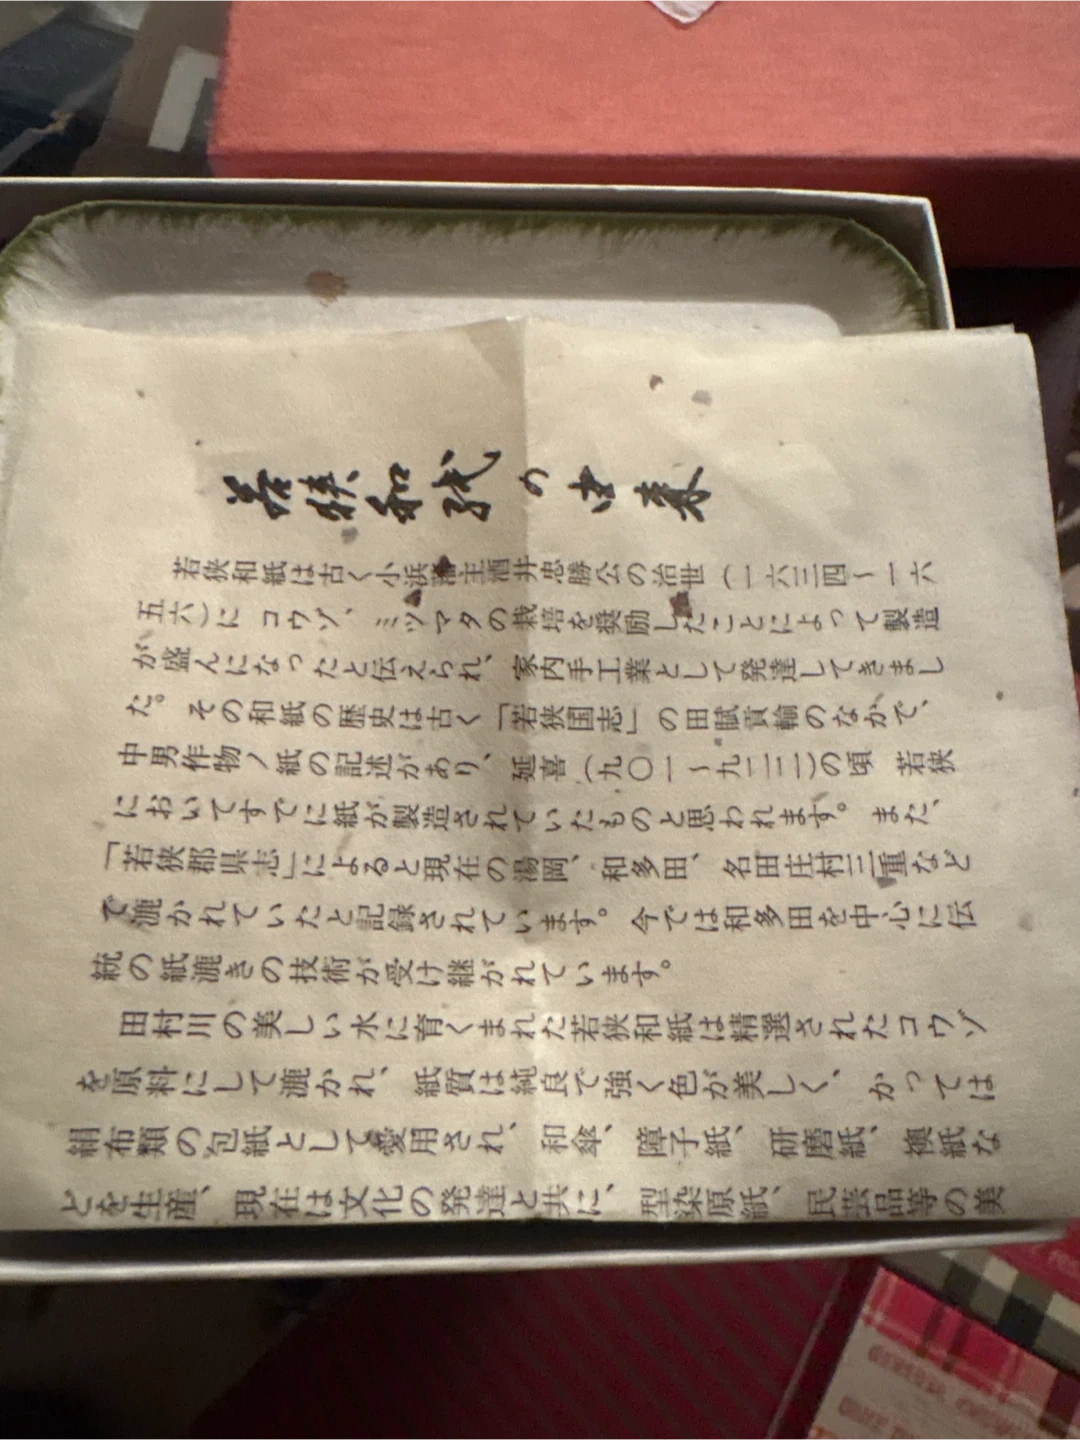 若狭和紙の由来
若狭和紙は古く小浜藩主酒井忠勝公の治世(一六三四〜一六
五六)に コウゾ、ミツマタの栽培を奨励したことによって製造
が盛んになったと伝えられ、家内手工業として発達してきまし
た。その和紙の歴史は古く「若狭国志」の田賦貢輸のなかで、
中男作物ノ紙の記述があり、延喜(九〇一〜九二二)の頃 若狭
においてすでに紙が製造されていたものと思われます。また、
「若狭郡県志」によると現在の湯岡、和多田、名田庄村三重など
で漉かれていたと記録されています。今では和多田を中心に伝
統の紙漉きの技術が受け継がれています。
田村川の美しい水に育くまれた若狭和紙は精選されたコウゾ
を原料にして漉かれ、紙質は純良で強く色が美しく、かっては
絹布類の包紙として愛用され、和傘、障子紙、研磨紙、襖紙な
どを生産、現在は文化の発達と共に、型染原紙、民芸品等の美